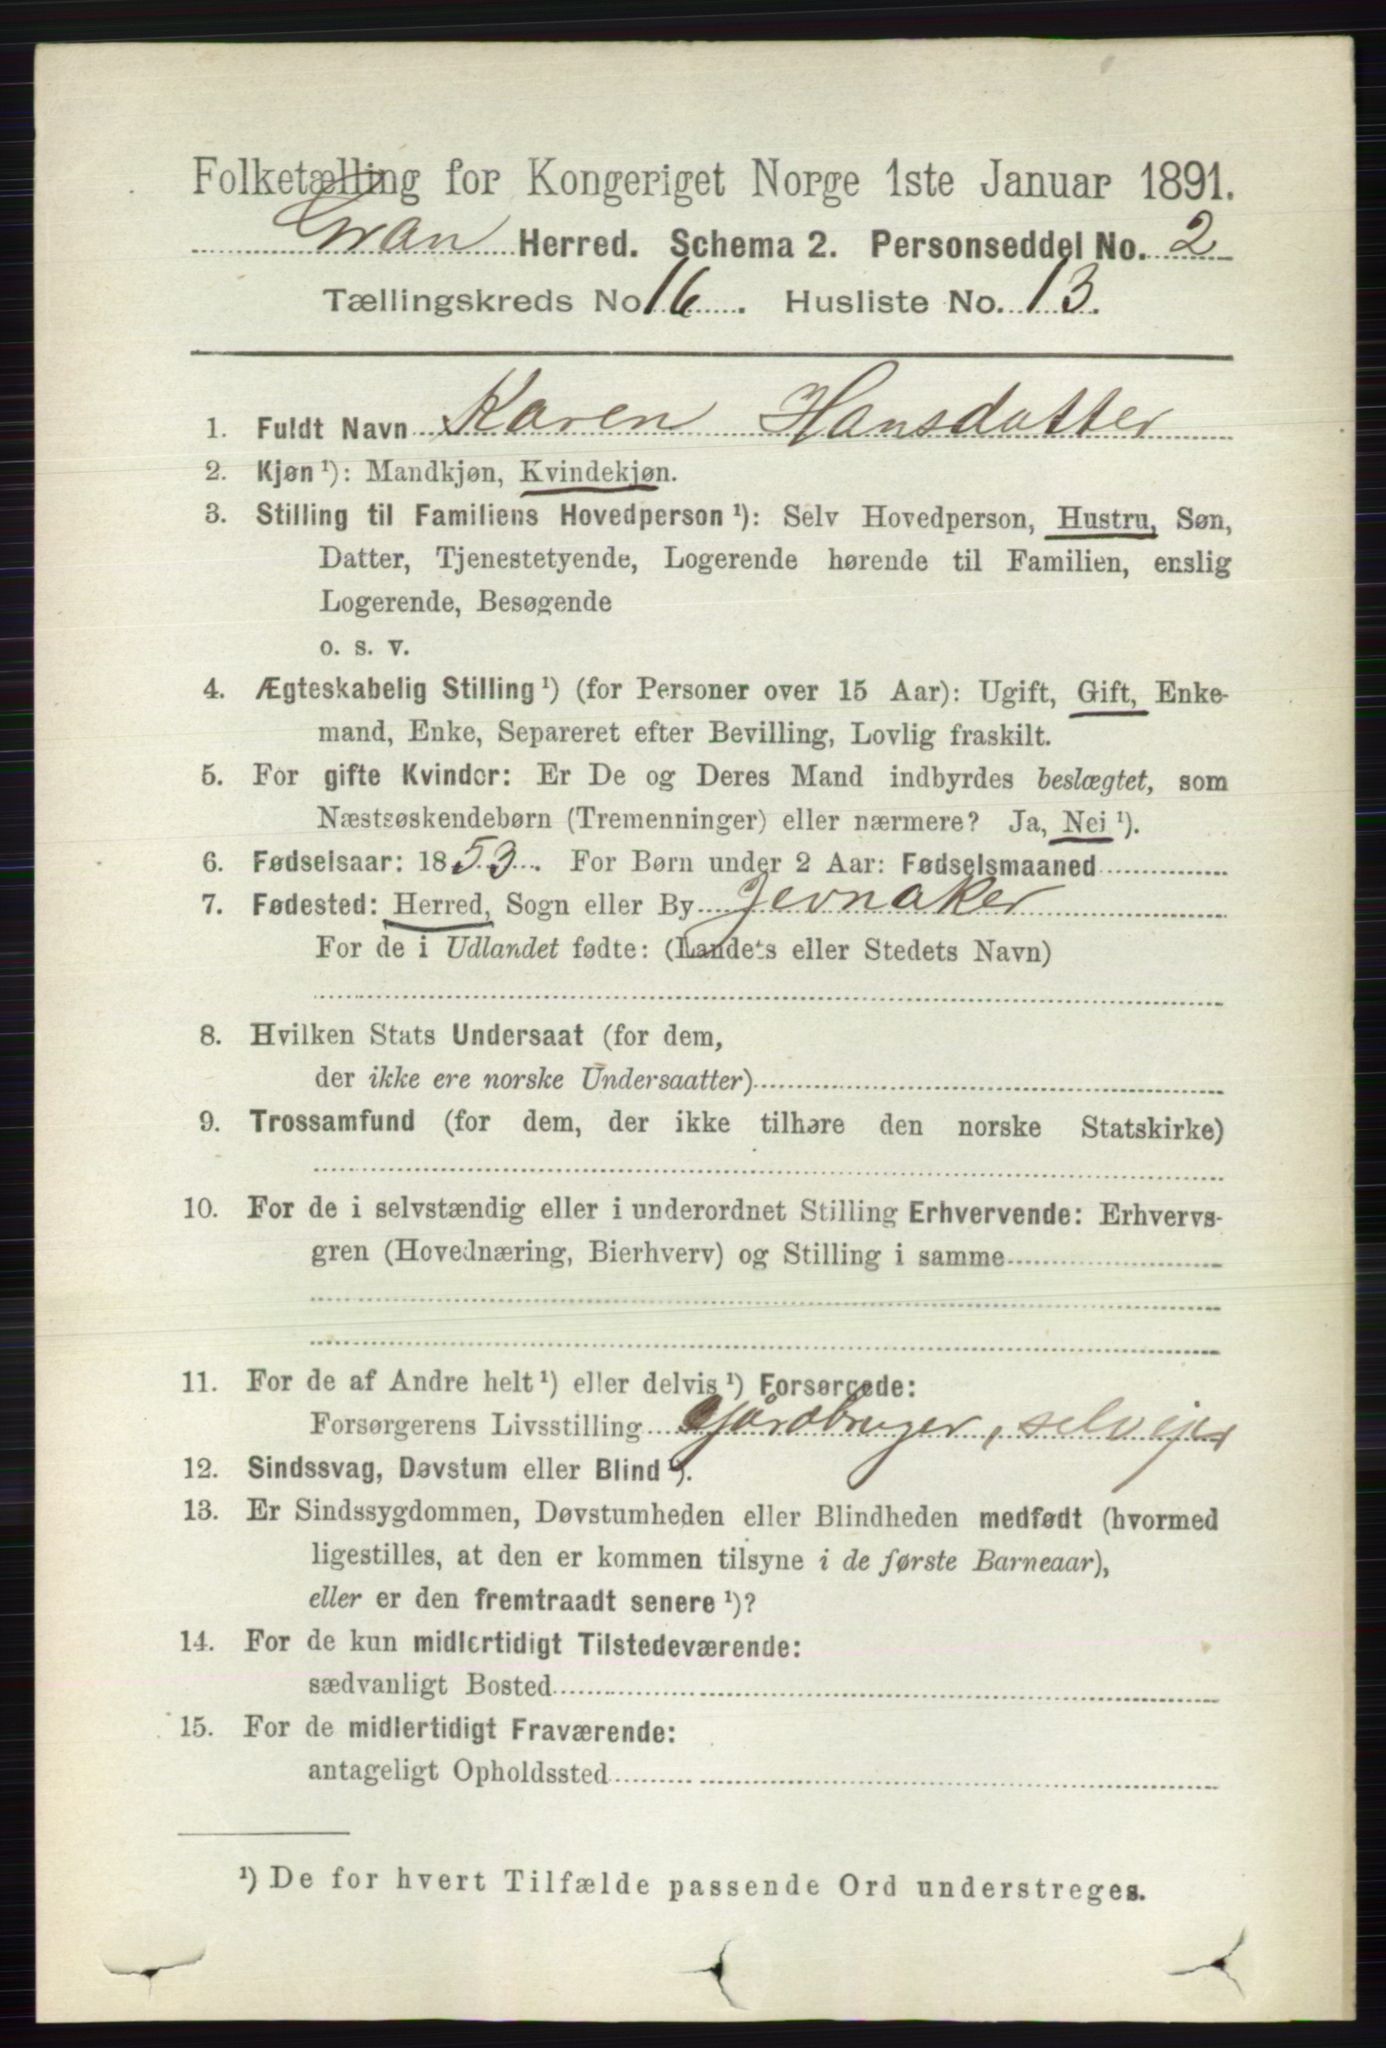 Folketælling for Kongeriget Norge 1ste Januar 1891.
Gran Herred. Schema 2. Personseddel No. 2
Tællingskreds No 16. Husliste No. 13.
1. Fuldt Navn Karen Hansdatter
2. Kjøn ¹): Mandkjøn, Kvindekjøn.
3. Stilling til Familiens Hovedperson ¹): Selv Hovedperson, Hustru, Søn,
Datter, Tjenestetyende, Logerende hørende til Familien, enslig
Logerende, Besøgende
o. s. v.
4. Ægteskabelig Stilling ¹) (for Personer over 15 Aar): Ugift, Gift, Enke-
mand, Enke, Separeret efter Bevilling, Lovlig fraskilt.
5. For gifte Kvinder: Er De og Deres Mand indbyrdes beslægtet, som
Næstsøskendebørn (Tremenninger) eller nærmere? Ja, Nei ¹).
6. Fødselsaar: 1853. For Børn under 2 Aar: Fødselsmaaned
7. Fødested: Herred, Sogn eller By Jevnaker
For de i Udlandet fødte: (Landets eller Stedets Navn)
8. Hvilken Stats Undersaat (for dem,
der ikke ere norske Undersaatter)
9. Trossamfund (for dem, der ikke tilhøre den norske Statskirke)
10. For de i selvstændig eller i underordnet Stilling Erhvervende: Erhvervs-
gren (Hovednæring, Bierhverv) og Stilling i samme
11. For de af Andre helt ¹) eller delvis ¹) Forsørgede:
Forsørgerens Livsstilling Gårdbruger, selvejer
12. Sindssvag, Døvstum eller Blind ¹).
13. Er Sindssygdommen, Døvstumheden eller Blindheden medfødt (hvormed
ligestilles, at den er kommen tilsyne i de første Barneaar),
eller er den fremtraadt senere ¹)?
14. For de kun midlertidigt Tilstedeværende:
sædvanligt Bosted
15. For de midlertidigt Fraværende:
antageligt Opholdssted
¹) De for hvert Tilfælde passende Ord understreges.